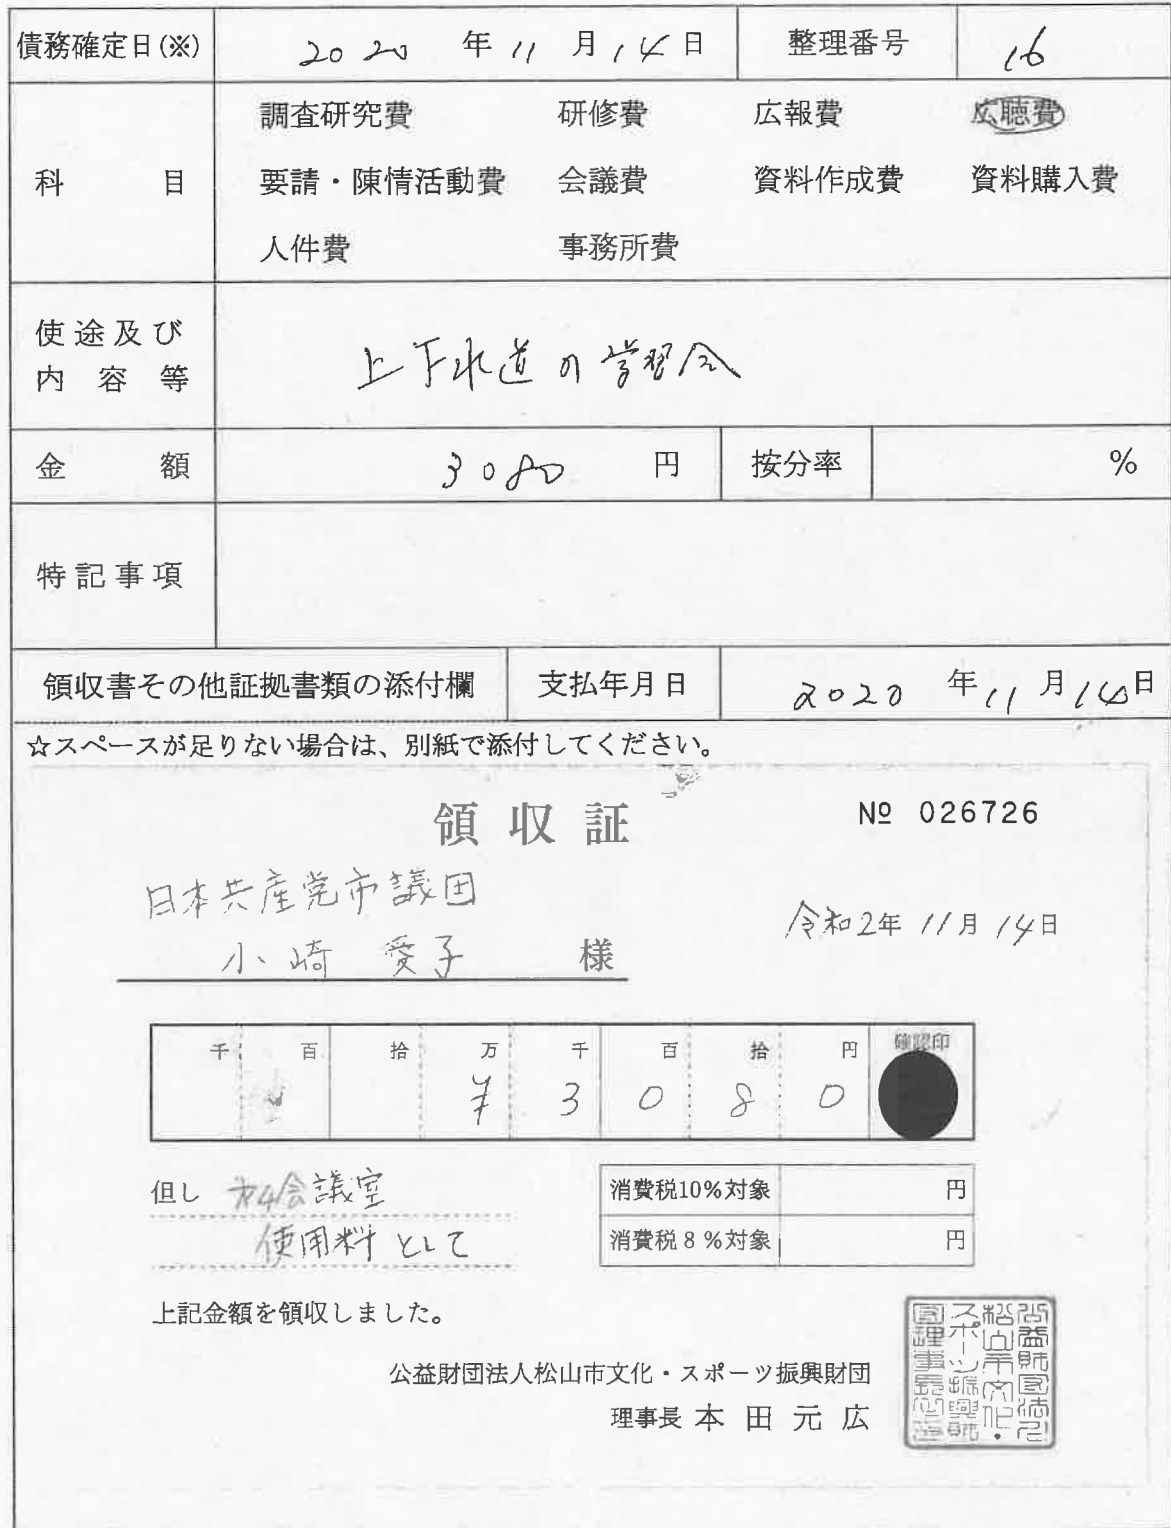 債務確定日(※) 2020 年 11 月 14 日 整理番号 16
調査研究費 研修費 広報費 広聴費
科 目 要請・陳情活動費 会議費 資料作成費 資料購入費
人件費 事務所費
使途及び
内容等 上下水道の学習会
金 額 3080 円 按分率 %
特記事項
領収書その他証拠書類の添付欄 支払年月日 2020 年 11 月 14 日
☆スペースが足りない場合は、別紙で添付してください。
領収証 № 026726
日本共産党市議団
令和2年 11月 14日
小崎 愛子 様
千 百 拾 万 千 百 拾 円 確認印
¥ 3 0 8 0
但し 第4会議室 消費税10%対象 円
使用料として 消費税8%対象 円
上記金額を領収しました。
公益財団法人松山市文化・スポーツ振興財団
理事長 本田元広
公益財団法人
松山市文化・
スポーツ振興財
団理事長之印